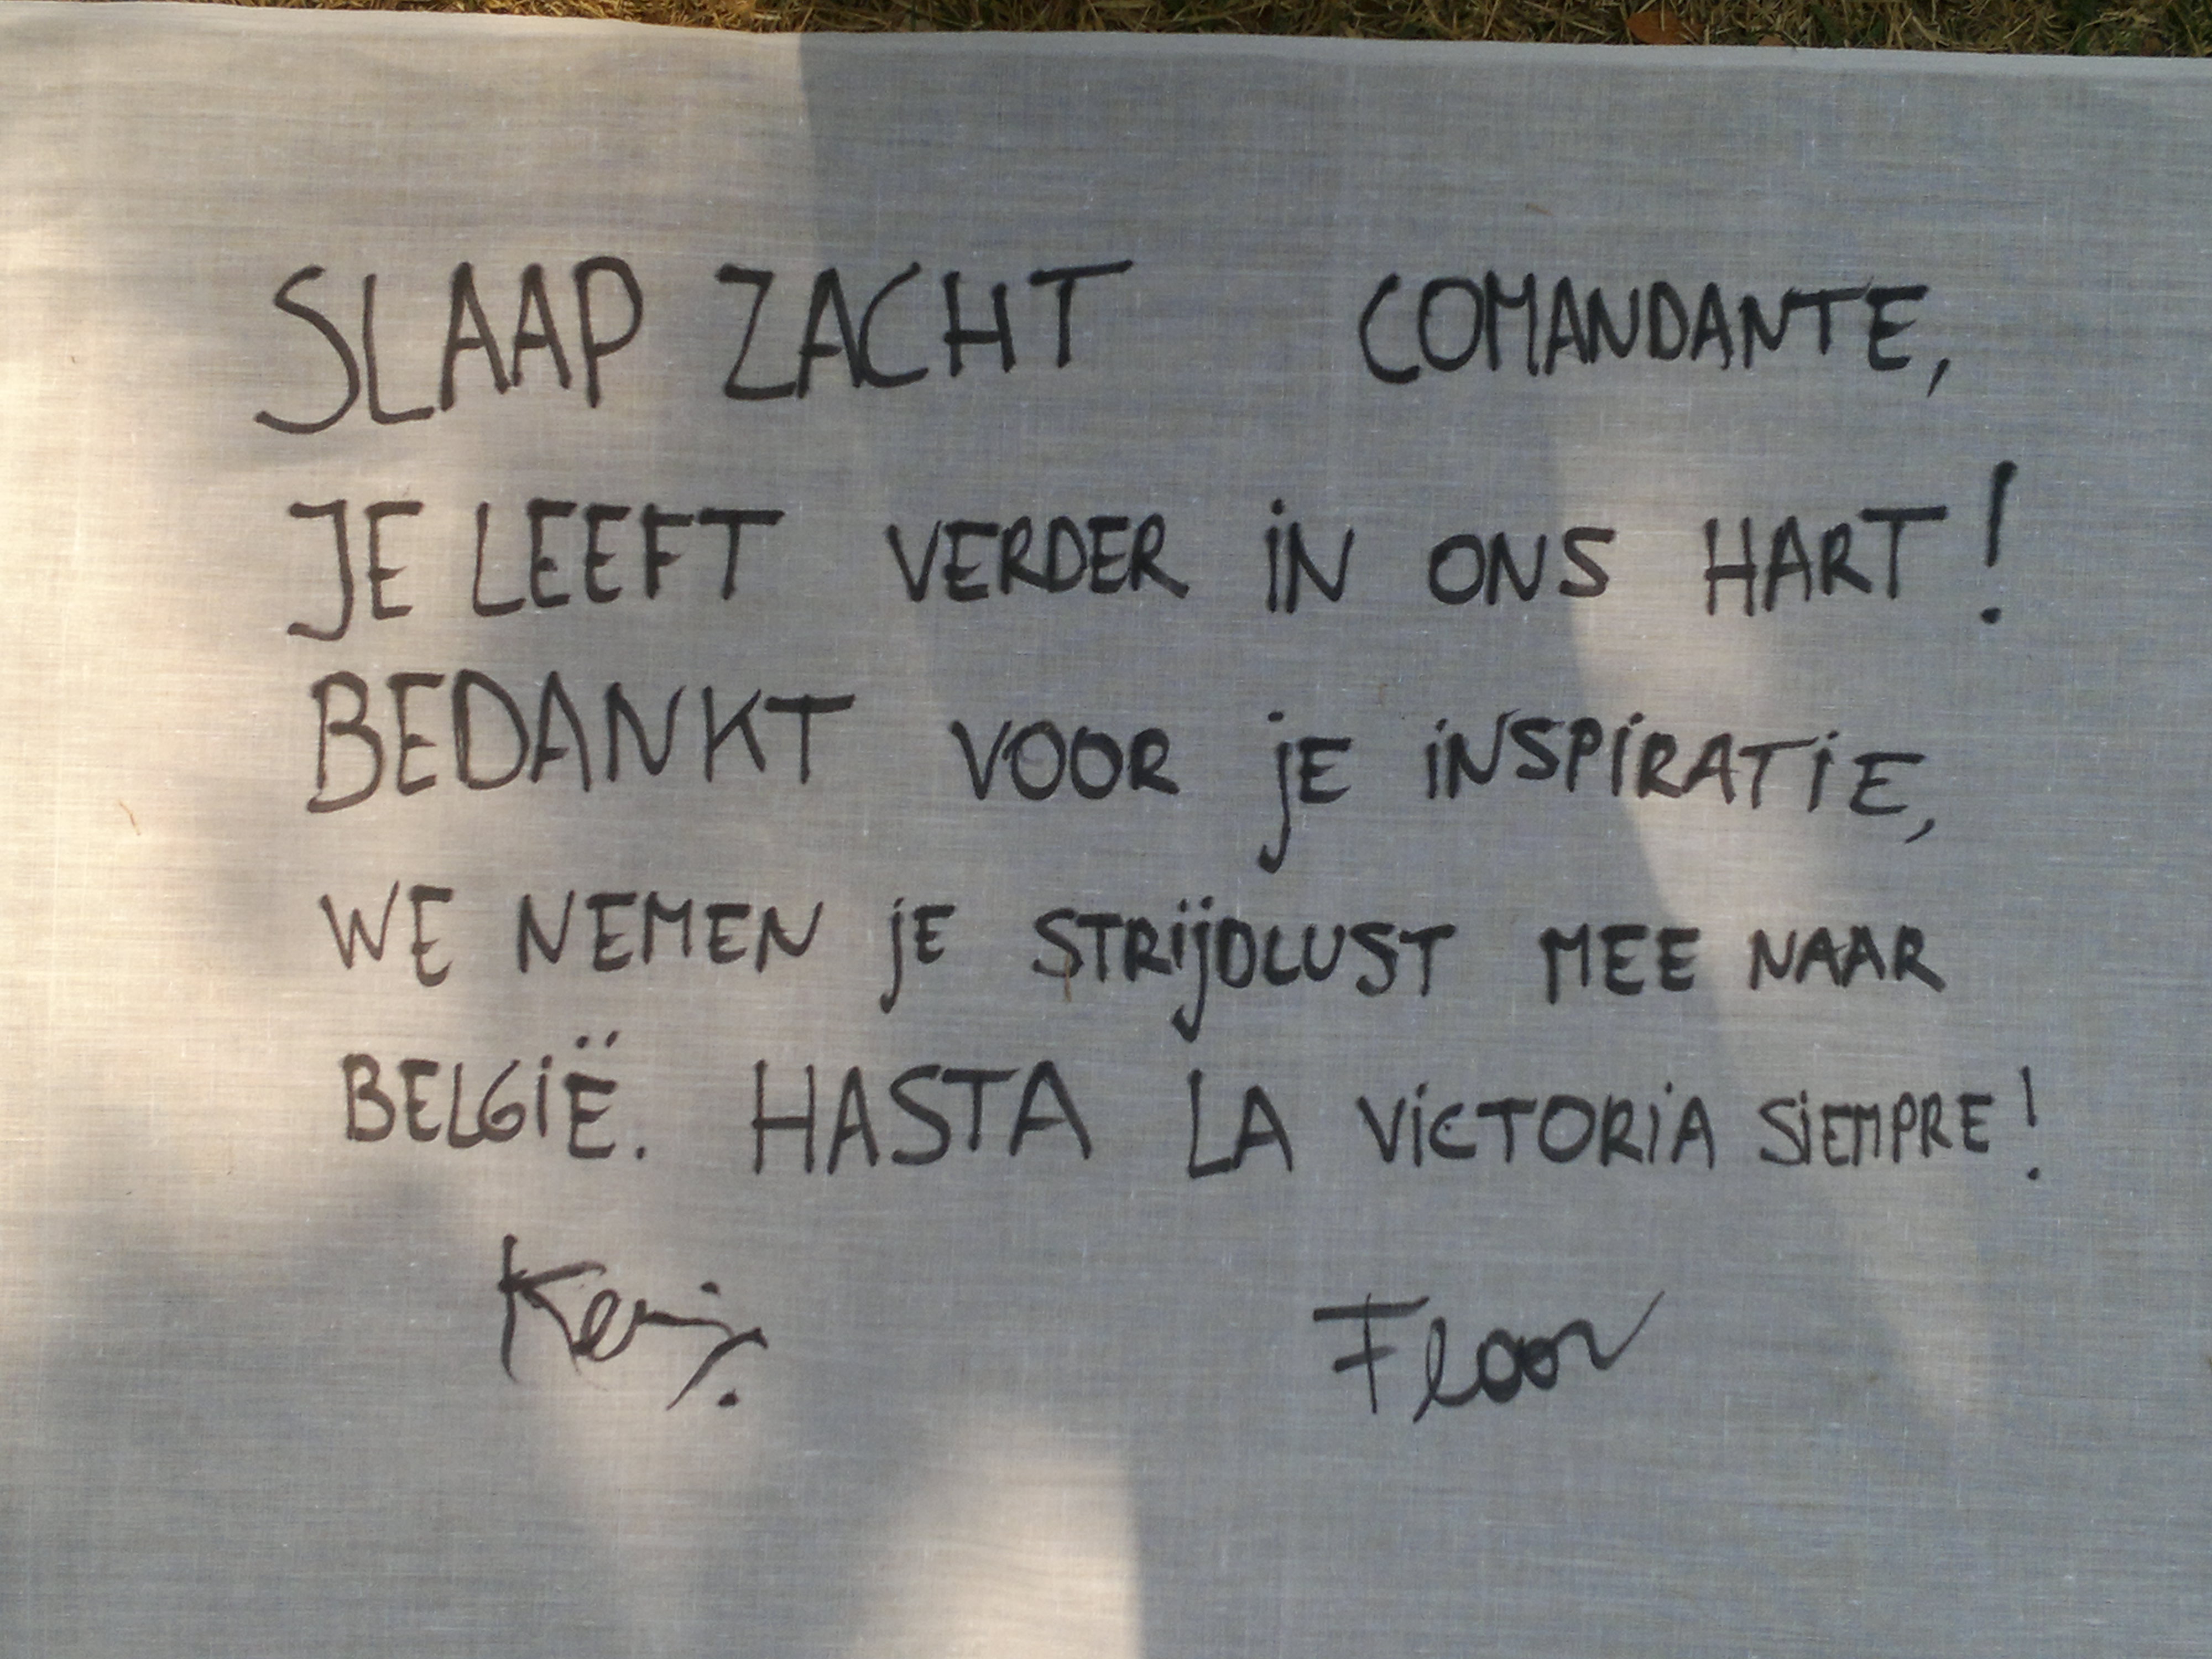 SLAAP ZACHT COMANDANTE,
JE LEEFT VERDER IN ONS HART!
BEDANKT VOOR JE INSPIRATIE,
WE NEMEN JE STRIJDLUST MEE NAAR
BELGIË. HASTA LA VICTORIA SIEMPRE!
Floor